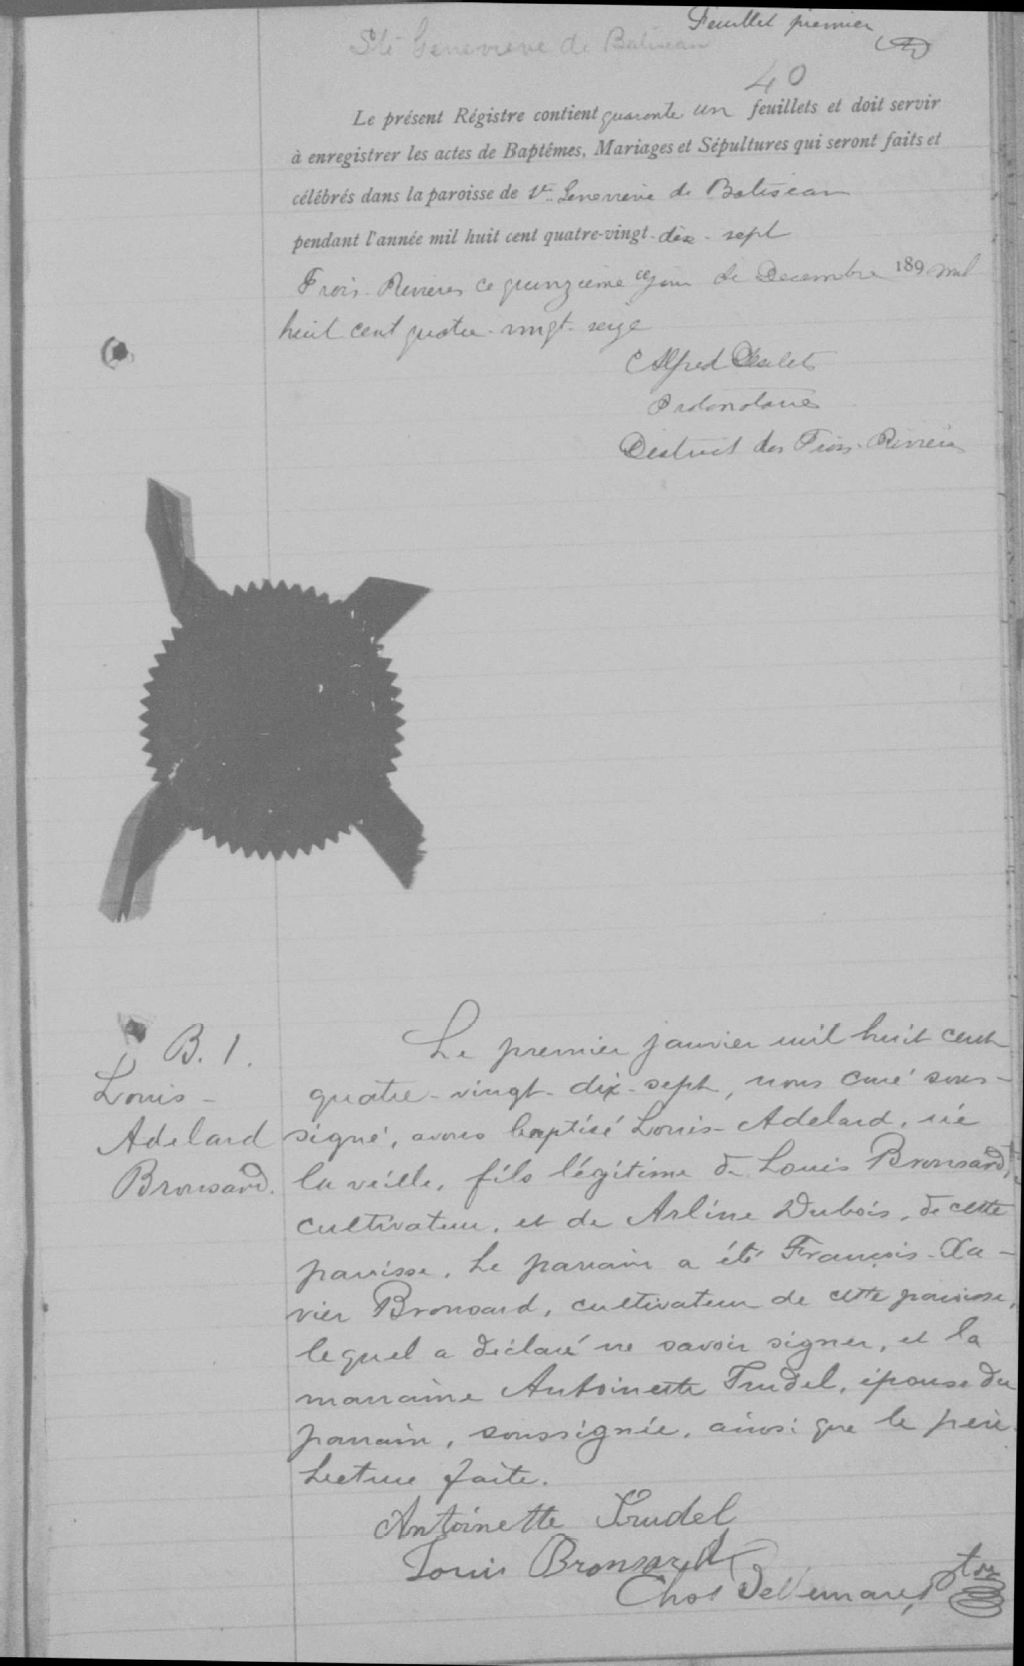 Feuillet premier
Ste Genevieve de Batiscan
40
Le présent Régistre contient quarante un feuillets et doit servir
à enregistrer les actes de Baptêmes, Mariages et Sépultures qui seront faits et
célébrés dans la paroisse de Ste Genevieve de Batiscan
pendant l'année mil huit cent quatre-vingt-dix-sept
Trois-Rivieres ce quinzieme jour de Decembre 189 mil
huit cent quatre-vingt-seize
Alfred
Protonotaire
District des Trois-Rivieres
B. 1.
Louis-
Adelard
Bronsard.
Le premier janvier mil huit cent
quatre-vingt-dix-sept, nous curé sous-
signé, avons baptisé Louis-Adelard, né
la veille, fils légitime de Louis Bronsard,
cultivateur, et de Arline Dubois, de cette
paroisse. Le parrain a été François-Xa-
vier Bronsard, cultivateur de cette paroisse,
lequel a déclaré ne savoir signer, et la
marraine Antoinette Trudel, épouse du
parrain, soussignée, ainsi que le père.
Lecture faite.
Antoinette Trudel
Louis Bronsard
Chs Bellemare, ptre